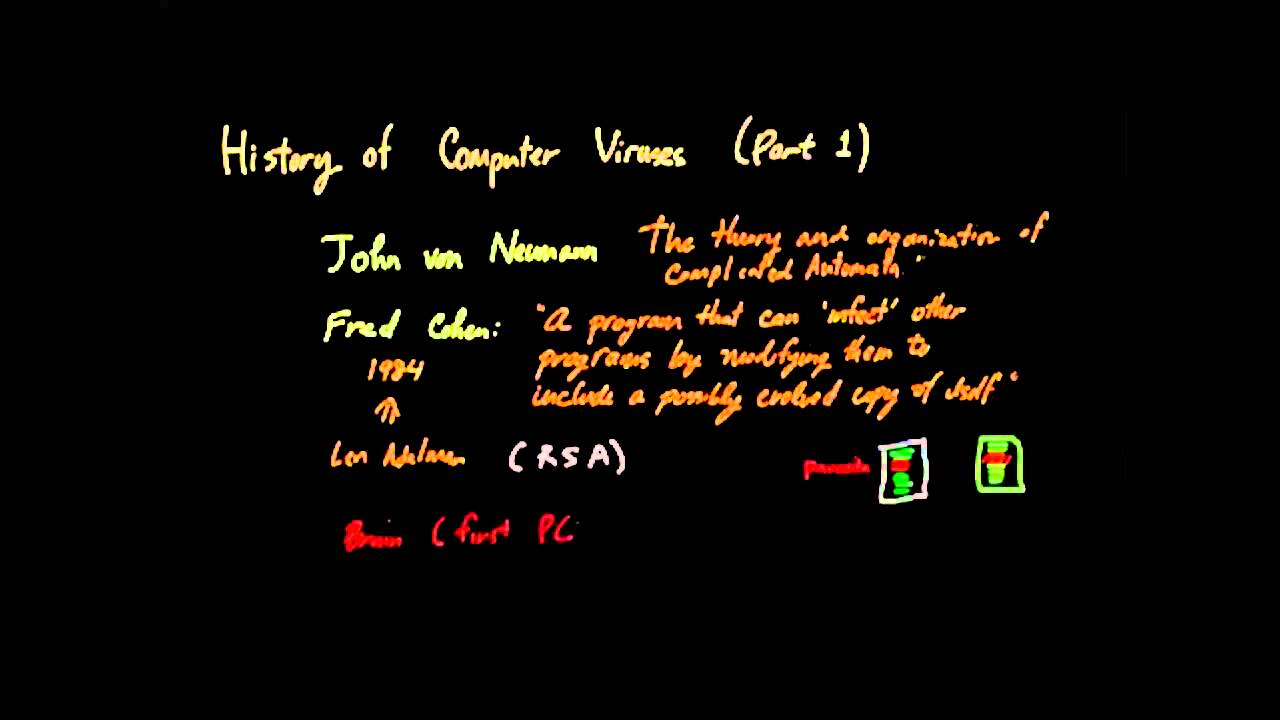 History of Computer Viruses (Part 1)
John von Neumann
The theory and organization of
Complicated Automata."
Fred Cohen:
1984
"A program that can 'infect' other
programs by modifying them to
include a possibly evolved copy of itself"
Len Adelman (RSA)
parasite
Brain (first PC